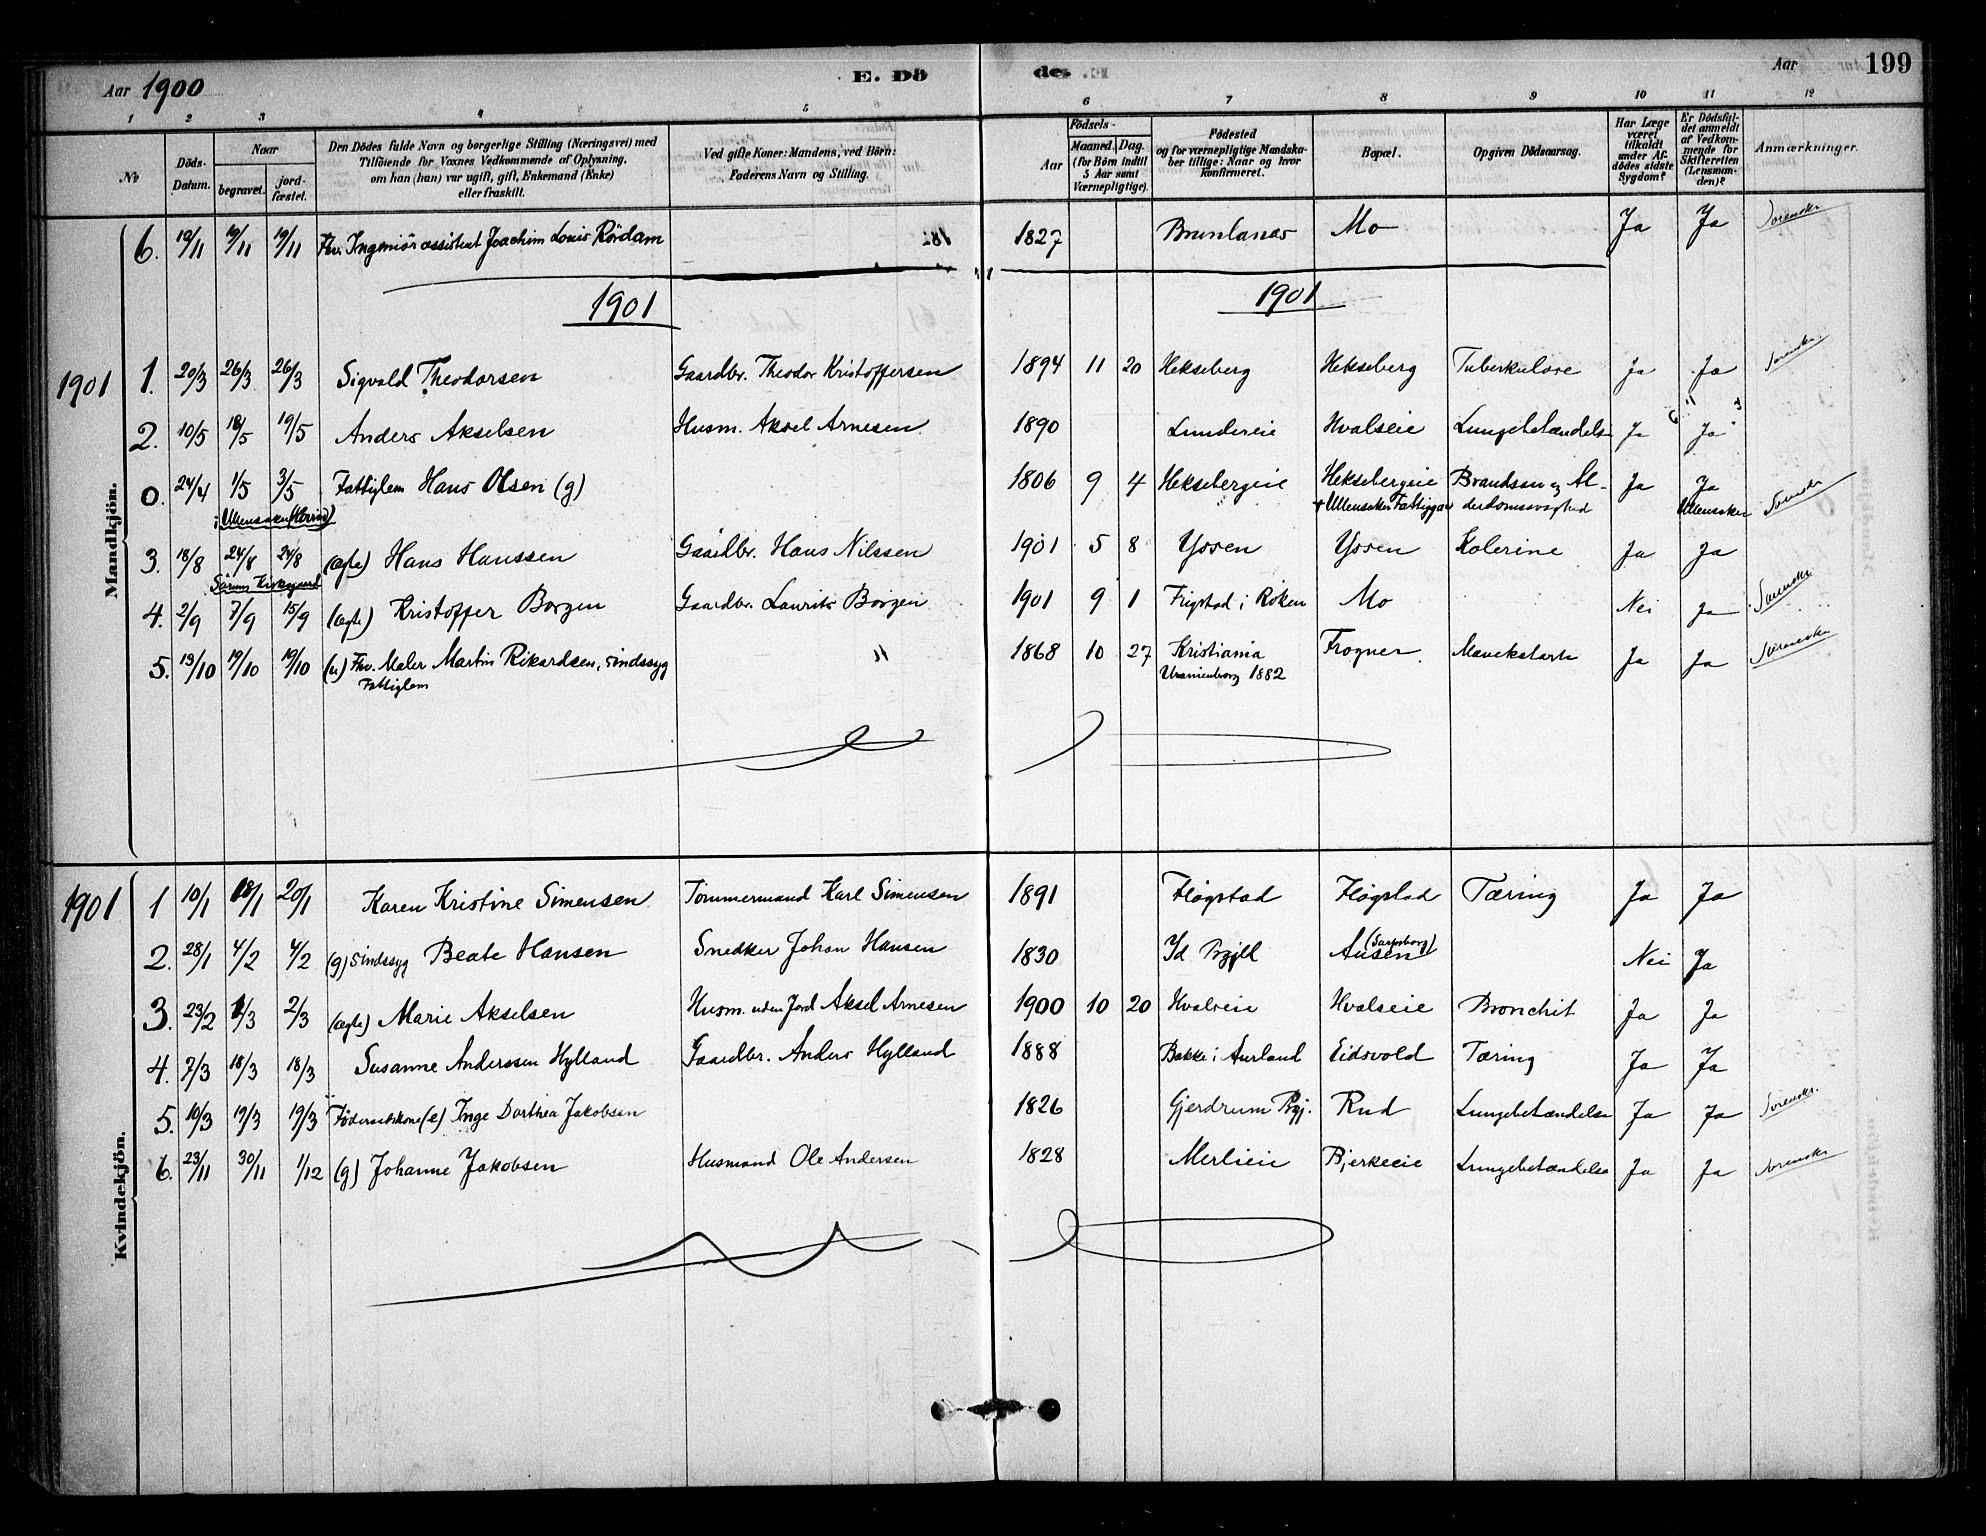 Aar 1900 E. Dö de. Aar 199
1 2 3 4 5 6 7 8 9 10 11 12
No. Döds-Datum. Naar begravet. jord-fæstet. Den Dödes fulde Navn og borgerlige Stilling (Næringsvei) med Tilföiende for Voxnes Vedkommende af Oplysning, om han (hun) var ugift, gift, Enkemand (Enke) eller fraskilt. Ved gifte Koner: Mandens, ved Börn: Faderens Navn og Stilling. Födsels- Aar Maaned. Dag. (for Börn indtil 5 Aar samt Værnepligtige). Födested og for værnepligtige Mandskaber tillige: Naar og hvor konfirmeret. Bopæl. Opgiven Dödsaarsag. Har Læge været tilkaldt under Afdödes sidste Sygdom? Er Dödsfaldet anmeldt af Vedkommende for Skifteretten (Lensmanden)? Anmærkninger.
Mandkjön.
6. 12/11 19/11 19/11 Fhv. Ingeniörassistent Joachim Louis Rördam 1827 Brunlanæs Mo Ja Ja Sorensker
1901 1901
1901 1. 20/3 26/3 26/3 Sigvald Theodorsen Gaardbr. Theodor Kristoffersen 1894 11 20 Hekseberg Hekseberg Tuberkulose Ja Ja Sorensker
2. 10/5 18/5 19/5 Anders Akselsen Husm. Aksel Arnesen 1890 Lundereie Hvalseie Lungebetændelse Ja Ja
0. 24/4 1/5 3/5 Fattiglem Hans Olsen (g) 1806 9 4 Heksebergeie Heksebergeie Brandsaar og Al- Ja Ja Sorensker
i Ullensaker (Hovind) + Ullensaker Fattiggaar derdomssvaghed Ullensaker
3. 18/8 24/8 24/8 (ægte) Hans Hanssen Gaardbr. Hans Nilssen 1901 5 8 Yssen Yssen Kolerine Ja Ja
Sörums Kirkegaard
4. 2/9 7/9 15/9 (ægte) Kristoffer Borgen Gaardbr. Laurits Borgen 1901 9 1 Frigstad i Röken Mo Nei Ja Sorensker
5. 13/10 19/10 19/10 (u) Fhv. Maler Martin Rikardsen, sindssyg 1868 10 27 Kristiania Frogner Mavekatarh Ja Ja Sorensker
Fattiglem Uranienborg 1882
Kvindekjön.
1901 1 10/1 18/1 20/1 Karen Kristine Simensen Tömmermand Karl Simensen 1891 Fløgstad Fløgstad Tæring Ja Ja
2. 28/1 4/2 4/2 (g) sindssyg Beate Hansen Snedker Johan Hansen 1830 Id Prgjld Ausen (Sarpsborg) Nei Ja
3. 23/2 2/3 2/3 (ægte) Marie Akselsen Husm. uden Jord Aksel Arnesen 1900 10 20 Hvalseie Hvalseie Bronchit Ja Ja
4. 7/3 18/3 18/3 Susanne Anderssen Hylland Gaardbr. Anders Hylland 1888 Bakke i Aurland Eidsvold Tæring Ja Ja
5. 10/3 19/3 19/3 Föderaadskone (e) Inge Dorthea Jakobsen 1826 Gjerdrum Prgj. Rud Lungebetændelse Ja Ja Sorensker
6. 23/11 30/11 1/12 (g) Johanne Jakobsen Husmand Ole Andersen 1828 Merlieie Bjerkeeie Lungebetændelse Ja Ja Sorensker